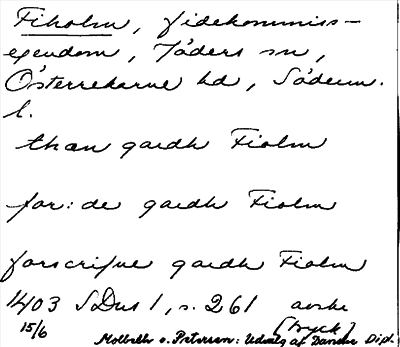 Fiholm, fidekommiss-
egendom, Jäders sn,
Österrekarne hd, Söderm.
l.
than gardh Fiolm
for:de gardh Fiolm
forscrifne gardh Fiolm
1403 SDns 1, s. 261 avskr
15/6 [tryck]
Molbech o. Petersen: Udvalg af Danske Dipl.